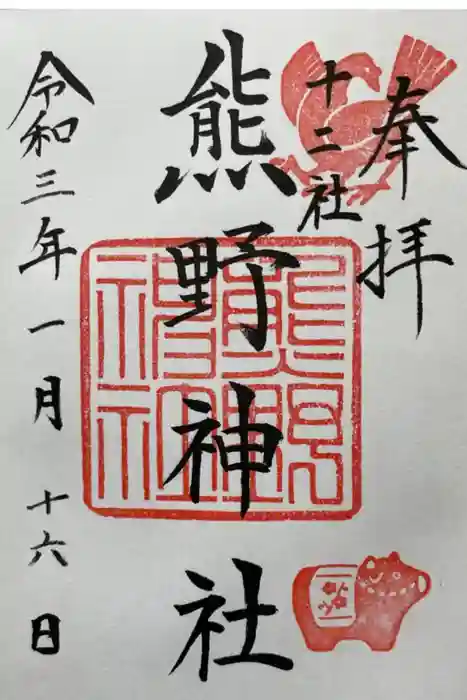 奉拝
十二社
熊野神社
令和三年一月十六日